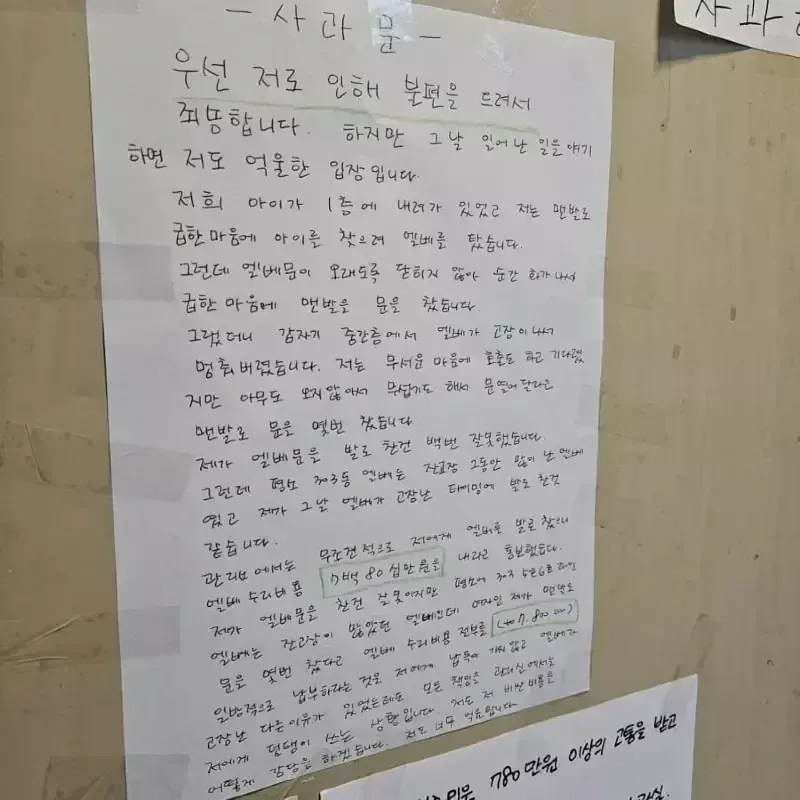 - 사 과 문 -
사 과
우선 저로 인해 불편을 드려서
죄송합니다. 하지만 그날 일어난 일을 얘기
하면 저도 억울한 입장입니다.
저희 아이가 1층에 내려가 있었고 저는 맨발로
급한 마음에 아이를 찾으러 엘베를 탔습니다.
그런데 엘베문이 오래도록 닫히지 않아 순간 화가나서
급한 마음에 맨발을 문을 찼습니다
그랬더니 갑자기 중간층에서 엘베가 고장이나서
멈춰버렸습니다. 저는 무서운 마음에 호출도 하고 기다렸
지만 아무도 오지않아서 무섭기도 해서 문열어달라고
맨발로 문을 몇번 찼습니다
제가 엘베문을 발로 찬건 백번 잘못했습니다.
그런데 평소 303동 엘베는 잔고장 그동안 많이 난 엘베
였고 제가 그날 엘베가 고장난 타이밍에 발로 찬것
같습니다.
관리소에서는 무조건적으로 저에게 엘베를 발로 찼으니
엘베 수리비용 7백 80 십만원을 내라고 통보했습니다.
제가 엘베문을 찬건 잘못이지만 평소에 303
엘베는 잔고장이 많았던 엘베인데 여자인 제가 맨발로
문을 몇번 찼다고 엘베 수리비용 전부를 (7,800,000)
일방적으로 납부하라는 것은 저에게 납득이 가지 않고 엘베가
고장난 다른이유가 있었는데도 모든 책임을 관리실에서는
저에게 덤탱이 쓰는 상황입니다. 저도 저 비싼 비용을
어떻게 감당을 하겠습니다. 저도 너무 억울합니다
780만원 이상의 고통을 받고